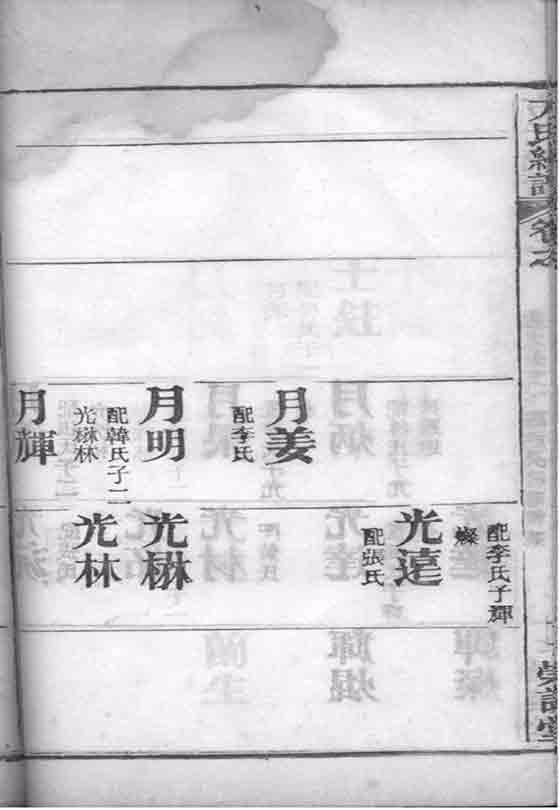 卷之
月姜
配李氏
月明
配韓氏子二
月輝
配李氏子輝
燦
光遠
配張氏
光
光林